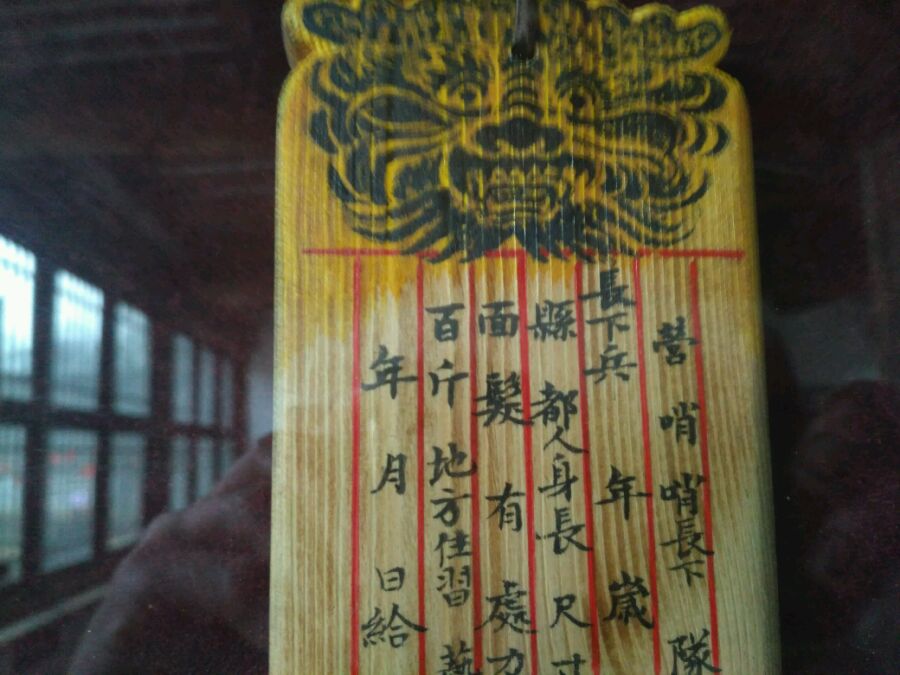 營 哨 哨長下 隊
長下兵 年 歲
縣 都人身長 尺寸
面 鬚 有 處力
百斤 地方住習 藝
年 月 日給